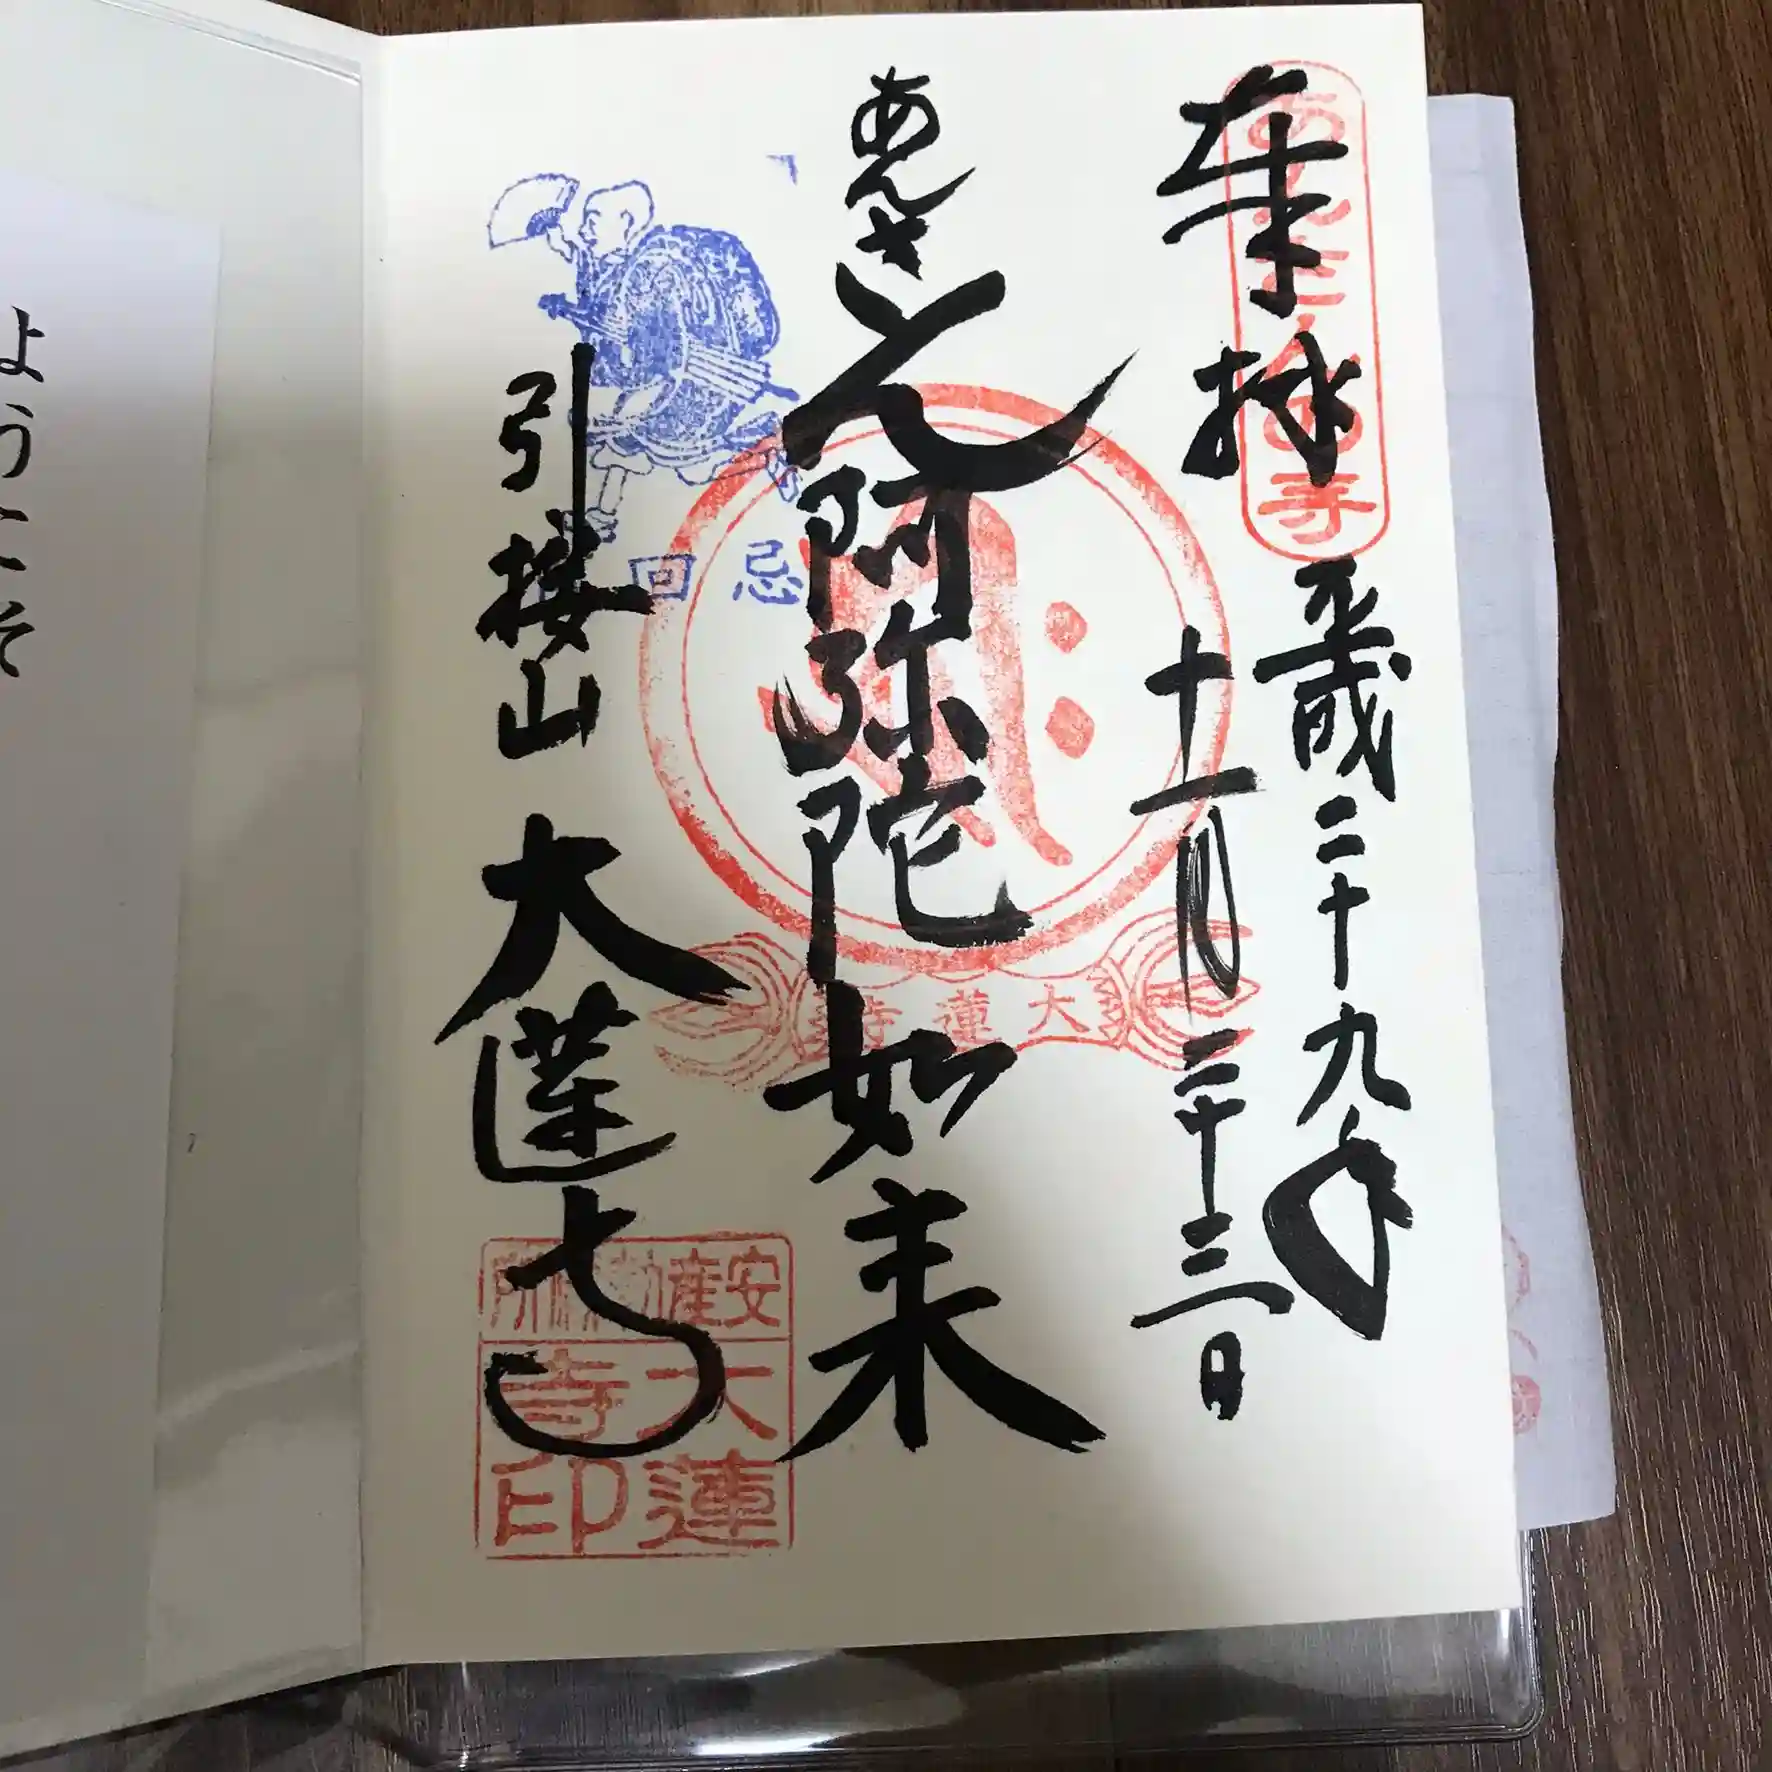 奉拝
平成二十九年
十一月二十三日
あんさん
阿弥陀如来
引接山
大蓮寺
あんさんの寺
回忌
大蓮寺
安産祈祷所
大蓮
寺印
ようこそ